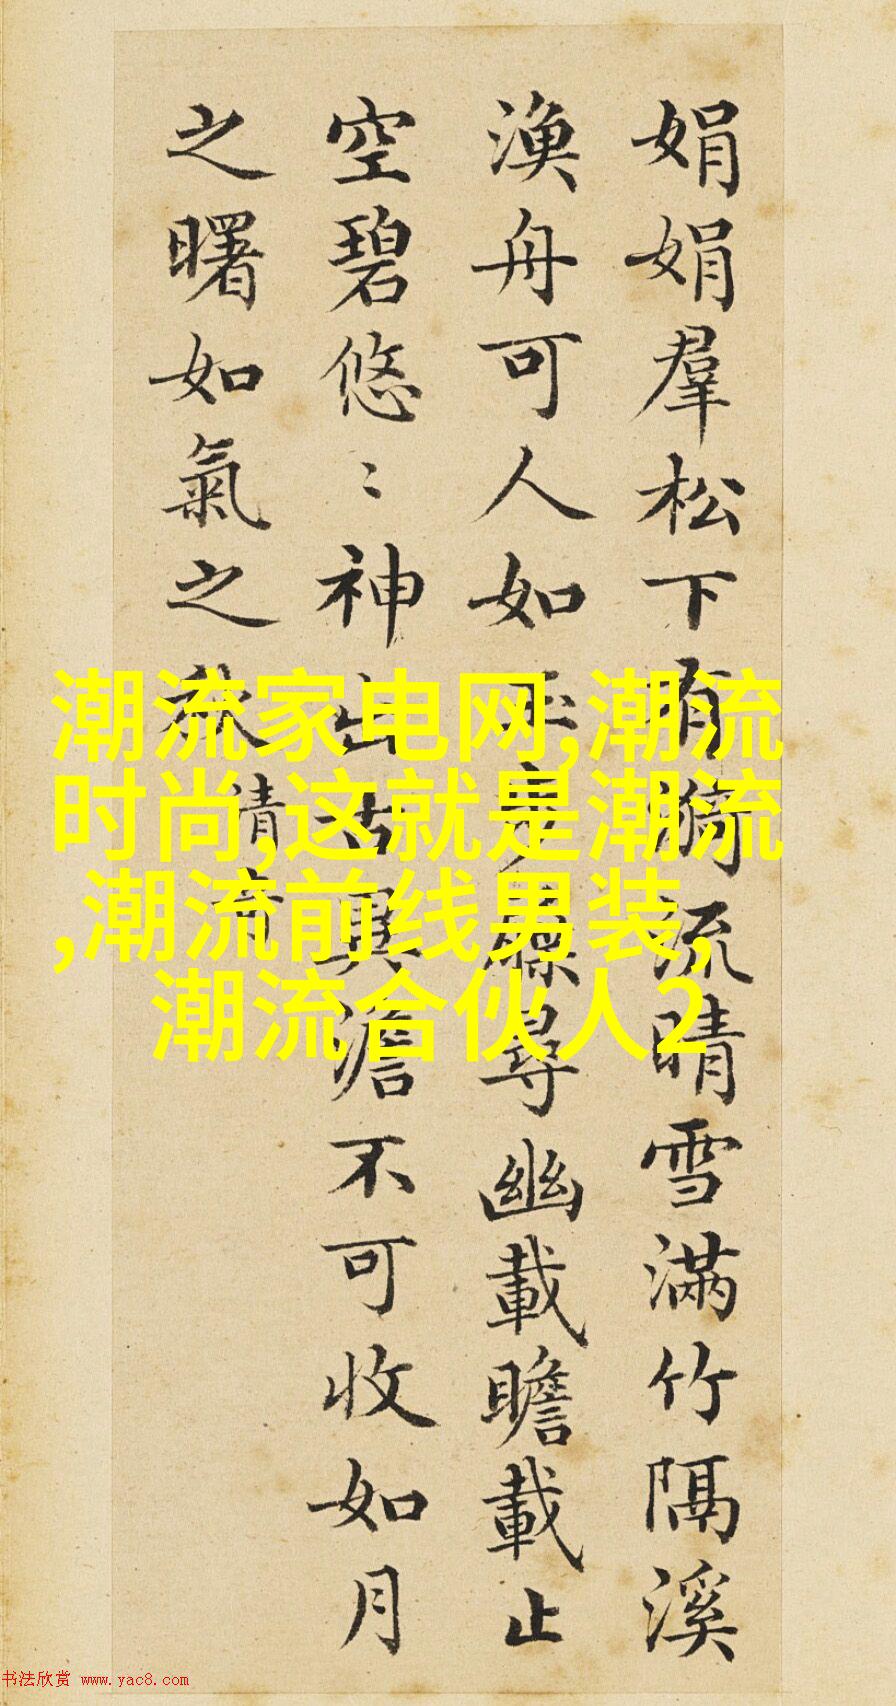 娟娟羣松下有漪流晴雪滿竹隔溪
漁舟可人如玉步屧尋幽載瞻載止
空碧悠〻神出古異澹不可收如月
之曙如氣之秋
清奇
潮流家电网,潮流
时尚,这就是潮流
,潮流前线男装,
潮流合伙人2
书法欣赏 www.yac8.com